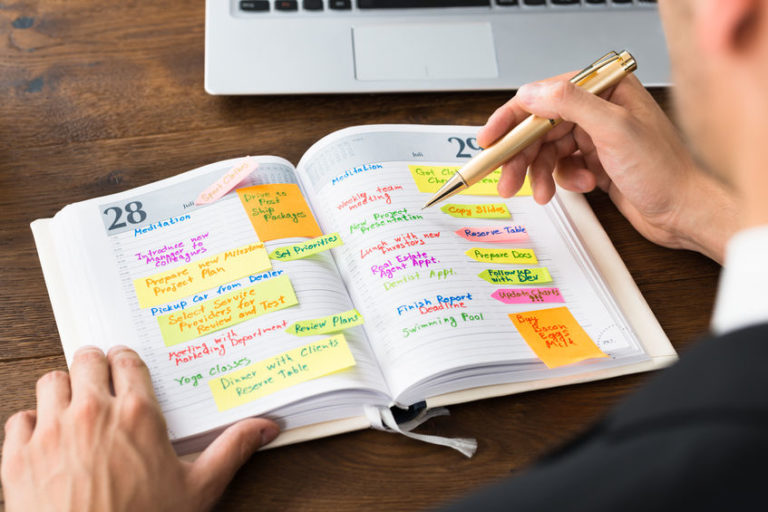 28
Juli
Start Claims
Meditation
Drive to
Post
Ship
Packages
Introduce new
Manager to
colleagues
Set Priorities
Prepare new Milestone
Project Plan
Pickup Car from Dealer
Select Service
Providers for
Review and Test
Meeting with
Marketing Department
Review Plans
Yoga Classes
Dinner with Clients
Reserve Table
29
Juli
Meditation
Got
Weekly team
meeting
Copy Slides
New Project
Presentation
Reserve Table
Lunch with new
Investors
Prepare Docs
Real Estate
Agent Appt.
Followup
with Dev
Dentist Appt.
Update Charts
Finish Report
Deadline
Swimming Pool
Buy
Bacon
Eggs
Milk